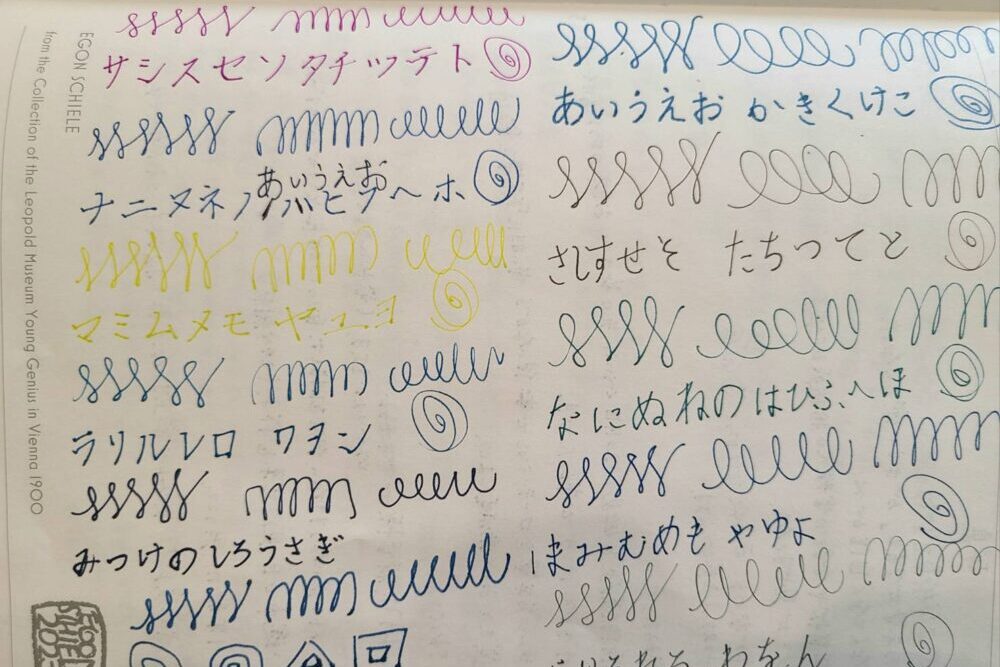 EGON SCHIELE
from the Collection of the Leopold Museum Young Genius in Vienna 1900
サシスセソタチツテト
あいうえお
ナニヌネノハヒフヘホ
マミムメモ ヤユヨ
ラリルレロ ワヲン
みつけのしろうさぎ
あいうえお かきくけこ
さしすせそ たちつてと
なにぬねのはひふへほ
まみむめも やゆよ
わをん